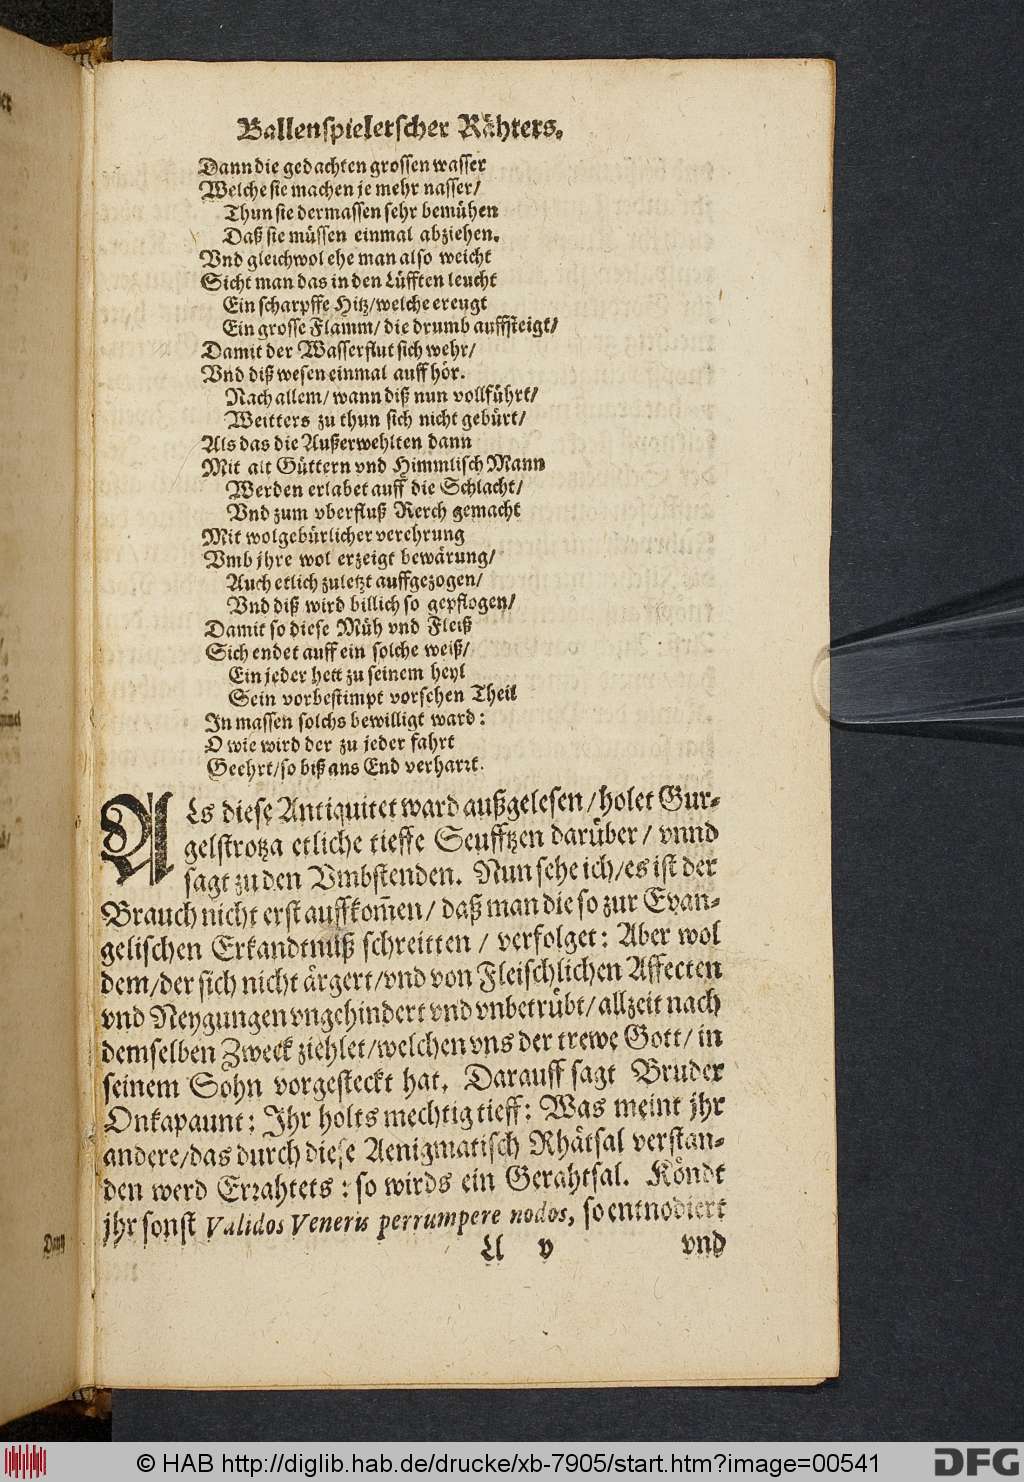 Ballenspieletscher Rähters.
Dann die gedachten grossen wasser
Welche sie machen je mehr nasser/
Thun sie dermassen sehr bemühen
Daß sie müssen einmal abziehen.
Vnd gleichwol ehe man also weicht
Sicht man das in den Lüfften leucht
Ein scharpffe Hitz/welche ereugt
Ein grosse Flamm/ die drumb auffsteigt/
Damit der Wasserflut sich wehr/
Vnd diß wesen einmal auff hör.
Nach allem/ wann diß nun vollführt/
Weitters zu thun sich nicht gebürt/
Als das die Außerwehlten dann
Mit alt Güttern vnd Himmlisch Mann
Werden erlabet auff die Schlacht/
Vnd zum vberfluß Rerch gemacht
Mit wolgebürlicher verehrung
Vmb jhre wol erzeigt bewärung/
Auch etlich zuletzt auffgezogen/
Vnd diß wird billich so gepflogen/
Damit so diese Müh vnd Fleiß
Sich endet auff ein solche weiß/
Ein jeder hett zu seinem heyl
Sein vorbestimpt vorsehen Theil
In massen solchs bewilligt ward:
O wie wird der zu jeder fahrt
Geehrt/so biß ans End verharrt.
ALs diese Antiquitet ward außgelesen/holet Gur-
gelstrotza etliche tieffe Seufftzen darüber/ vnnd
sagt zu den Vmbstenden. Nun sehe ich/es ist der
Brauch nicht erst auffkom̃en/ daß man die so zur Evan-
gelischen Erkandtnuß schreitten / verfolget: Aber wol
dem/der sich nicht ärgert/vnd von Fleischlichen Affecten
vnd Neygungen vngehindert vnd vnbetrübt/allzeit nach
demselben Zweck ziehlet/welchen vns der trewe Gott/ in
seinem Sohn vorgesteckt hat. Darauff sagt Bruder
Onkapaunt: Ihr holts mechtig tieff: Was meint jhr
andere/das durch diese Aenigmatisch Rhätsal verstan-
den werd Errahtets : so wirds ein Gerahtsal. Köndt
jhr sonst Validos Veneris perrumpere nodos, so entnodiert
U v
vnd
© HAB http://diglib.hab.de/drucke/xb-7905/start.htm?image=00541
DFG